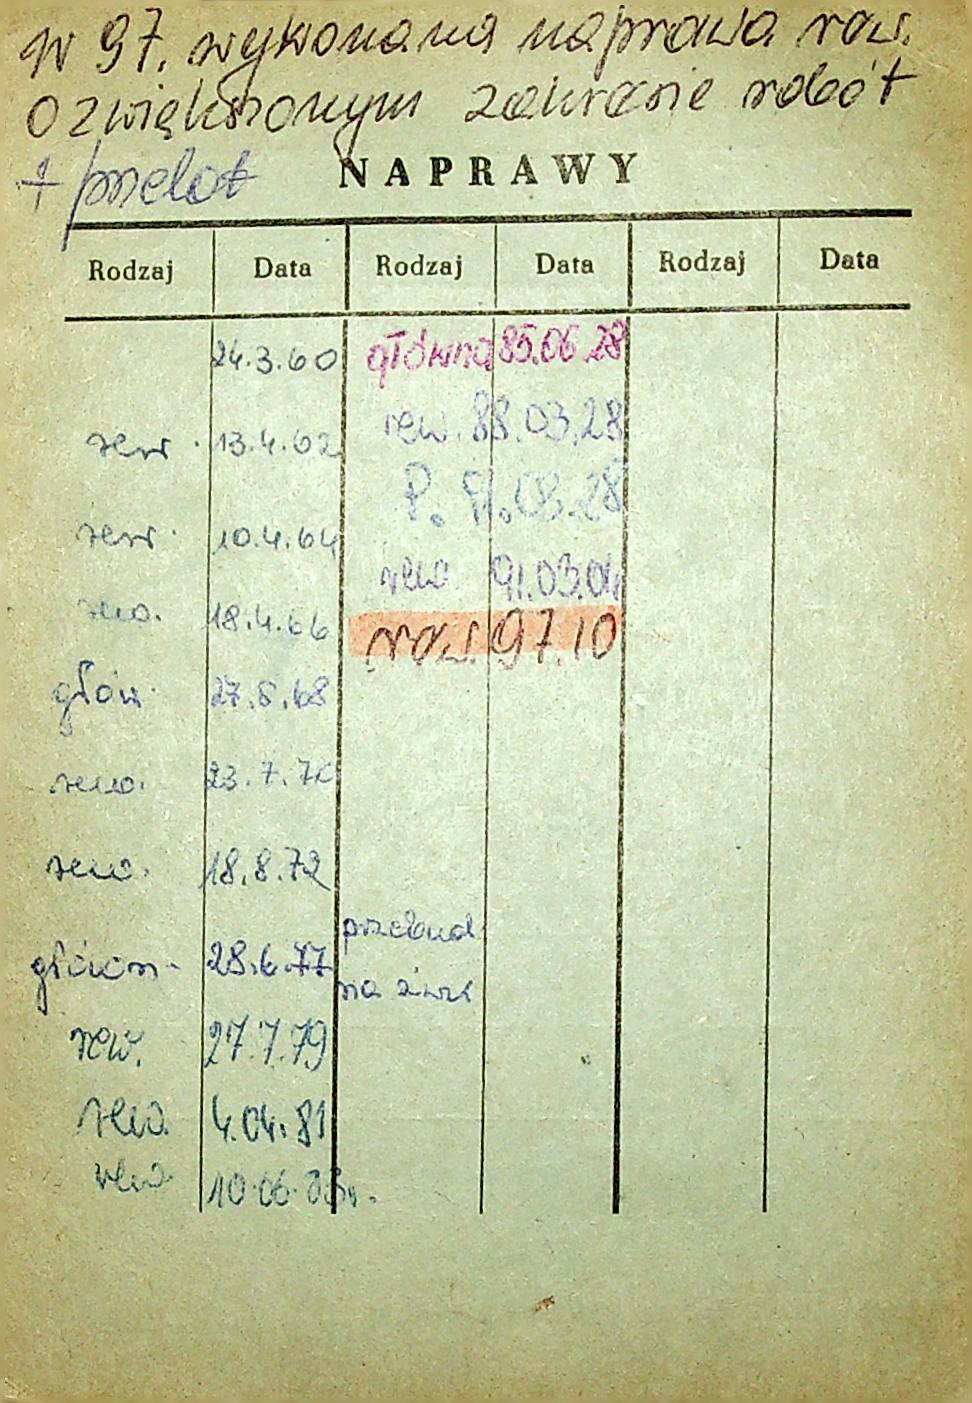 W 97. wykonana naprawa rew.
o zwiększonym zakresie robót
+ przelot
NAPRAWY
Rodzaj Data Rodzaj Data Rodzaj Data
24.3.60 główna 85.06.28
rew. 88.03.28
rew. 13.4.62
P. 91.03.28
rew. 10.4.64
rew. 91.03.04
rew. 18.4.66
rew. 97.10
głów. 27.8.68
rew. 23.7.70
rew. 18.8.72
przebud
główn. 28.6.77
na
rew. 27.7.79
rew. 4.04.81
rew. 10.06.83r.